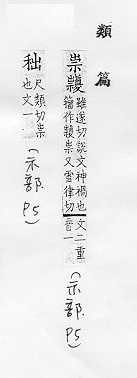 類篇
祟 𥜻 雖遂切說文神禍也
籀作𥜻祟又雪律切
文二重
音一
(示部. P5)
䄌 尺類切祟
也文一
(示部. P5)